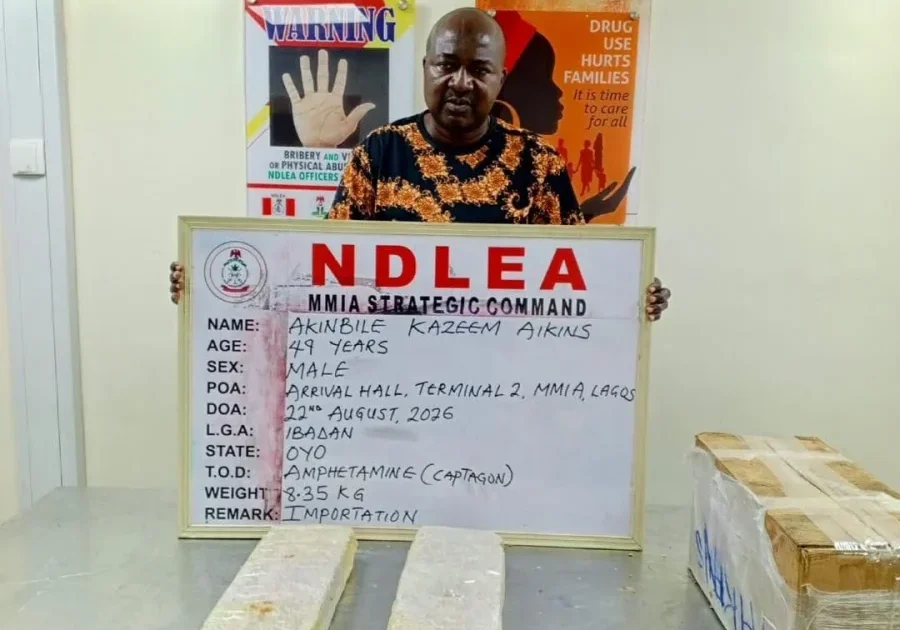 WARNING
BRIBERY AND
OR PHYSICAL ABU
NDLEA OFFICERS
DRUG
USE
HURTS
FAMILIES
It is time
to care
for all
NDLEA
MMIA STRATEGIC COMMAND
NAME: AKINBILE KAZEEM AIKINS
AGE: 49 YEARS
SEX: MALE
POA: ARRIVAL HALL, TERMINAL 2, MMIA, LAGOS
DOA: 22ND AUGUST, 2026
L.G.A: IBADAN
STATE: OYO
T.O.D: AMPHETAMINE (CAPTAGON)
WEIGHT 8.35 KG
REMARK: IMPORTATION